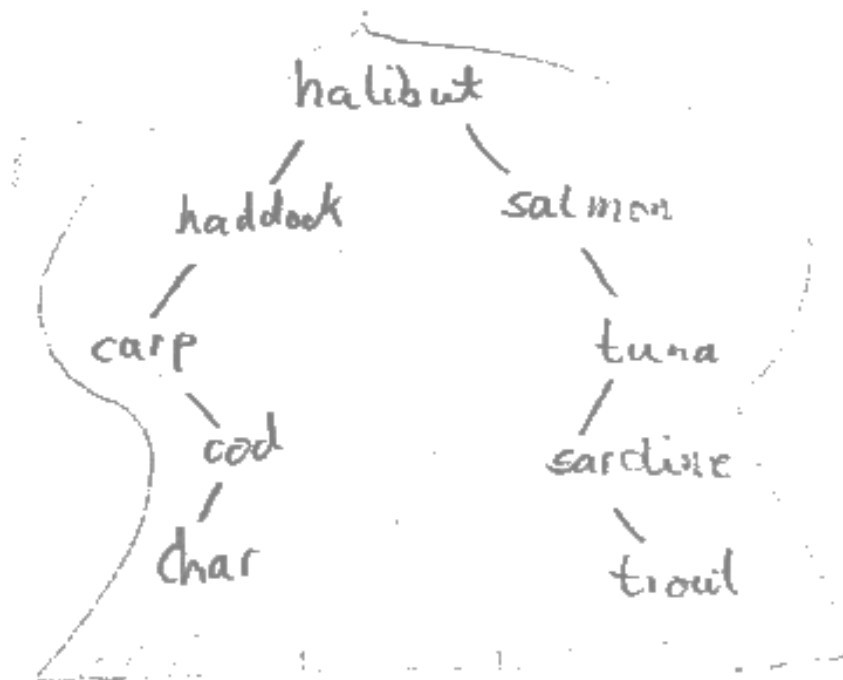 halibut
haddock salmon
carp tuna
cod sardine
char trout